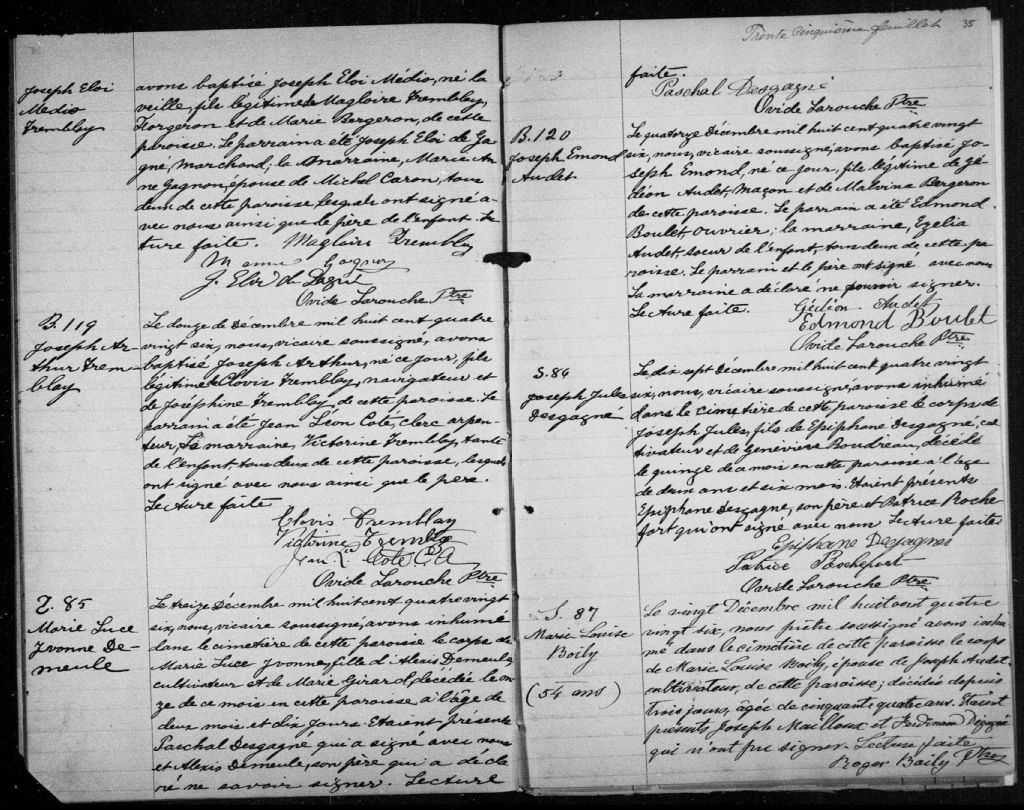 Joseph Eloi
Médio
Tremblay
avons baptisé Joseph Eloi Médio, né la
veille, fils légitime de Magloire Tremblay,
Forgeron et de Marie Bergeron, de cette
paroisse. Le parrain a été Joseph Eloi de Ga-
gné, Marchand; la Marraine, Marie An-
ne Gagnon, épouse de Michel Caron, tous
deux de cette paroisse, lesquels ont signé a-
vec nous ainsi que le père de l'enfant. Lec-
ture faite. Magloire Tremblay
Gagnon
J. Eloi de Gagné
Ovide Larouche Ptre
B. 119
Joseph Ar-
thur Trem-
blay
Le douze de Décembre mil huit cent quatre
vingt six, nous, vicaire soussigné, avons
baptisé Joseph Arthur, né ce jour, fils
légitime de Clovis Tremblay, navigateur et
de Joséphine Tremblay, de cette paroisse. Le
parrain a été Jean Léon Coté, clerc arpen-
teur, La marraine, Victorine Tremblay, tante
de l'enfant, tous deux de cette paroisse, lesquels
ont signé avec nous ainsi que le père.
Lecture faite
Clovis Tremblay
Victorine Tremblay
Jean L. Coté C A
Ovide Larouche Ptre
S. 85
Marie Luce
Yvonne De-
meule
Le treize Décembre mil huit cent quatre vingt
six, nous, vicaire soussigné, avons inhumé
dans le cimetière de cette paroisse le corps de
Marie Luce Yvonne, fille d'Alexis Demeule,
cultivateur et de Marie Girard, décédée le on-
ze de ce mois en cette paroisse à l'âge de
deux mois et dix jours. Etaient présents
Paschal Desgagné qui a signé avec nous
et Alexis Demeule, son père qui a décla-
ré ne savoir signer. Lecture
Trente Cinquième feuillet
35
faite.
Paschal Desgagné
Ovide Larouche Ptre
B. 120
Joseph Emond
Audet
Le quatorze Décembre mil huit cent quatre vingt
six, nous, vicaire soussigné, avons baptisé Jo-
seph Emond, né ce jour, fils légitime de Gé-
déon Audet, Maçon et de Malvina Bergeron
de cette paroisse. Le parrain a été Edmond
Boulet, ouvrier; la marraine, Ezelia
Audet, soeur de l'enfant, tous deux de cette pa-
roisse. Le parrain et le père ont signé avec nous
La marraine a déclaré ne pouvoir signer.
Lecture faite. Gédéon Audet
Edmond Boulet
Ovide Larouche Ptre
S. 86
Joseph Jules
Desgagné
Le dix sept Décembre mil huit cent quatre vingt
six, nous, vicaire soussigné, avons inhumé
dans le cimetière de cette paroisse le corps de
Joseph Jules, fils de Epiphane Desgagné, cul-
tivateur et de Geneviève Boudreau, décédé
le quinze de ce mois en cette paroisse à l'âge
de deux ans et six mois. Etaient présents
Epiphane Desgagné, son père et Patrice Roche
fort qui ont signé avec nous Lecture faite
Epiphane Desgagnés
Patrice Rochefort
Ovide Larouche Ptre
S. 87
Marie Louise
Boily
(54 ans)
Le vingt Décembre mil huit cent quatre
vingt six, nous prêtre soussigné avons inhu-
mé dans le cimetière de cette paroisse le corps
de Marie-Louise Boily, épouse de Joseph Audet
cultivateur, de cette paroisse; décédée depuis
trois jours, âgée de cinquante quatre ans. Etaient
présents Joseph Mailloux et Ferdinand Degagné
qui n'ont pu signer. Lecture faite
Roger Boily Ptre